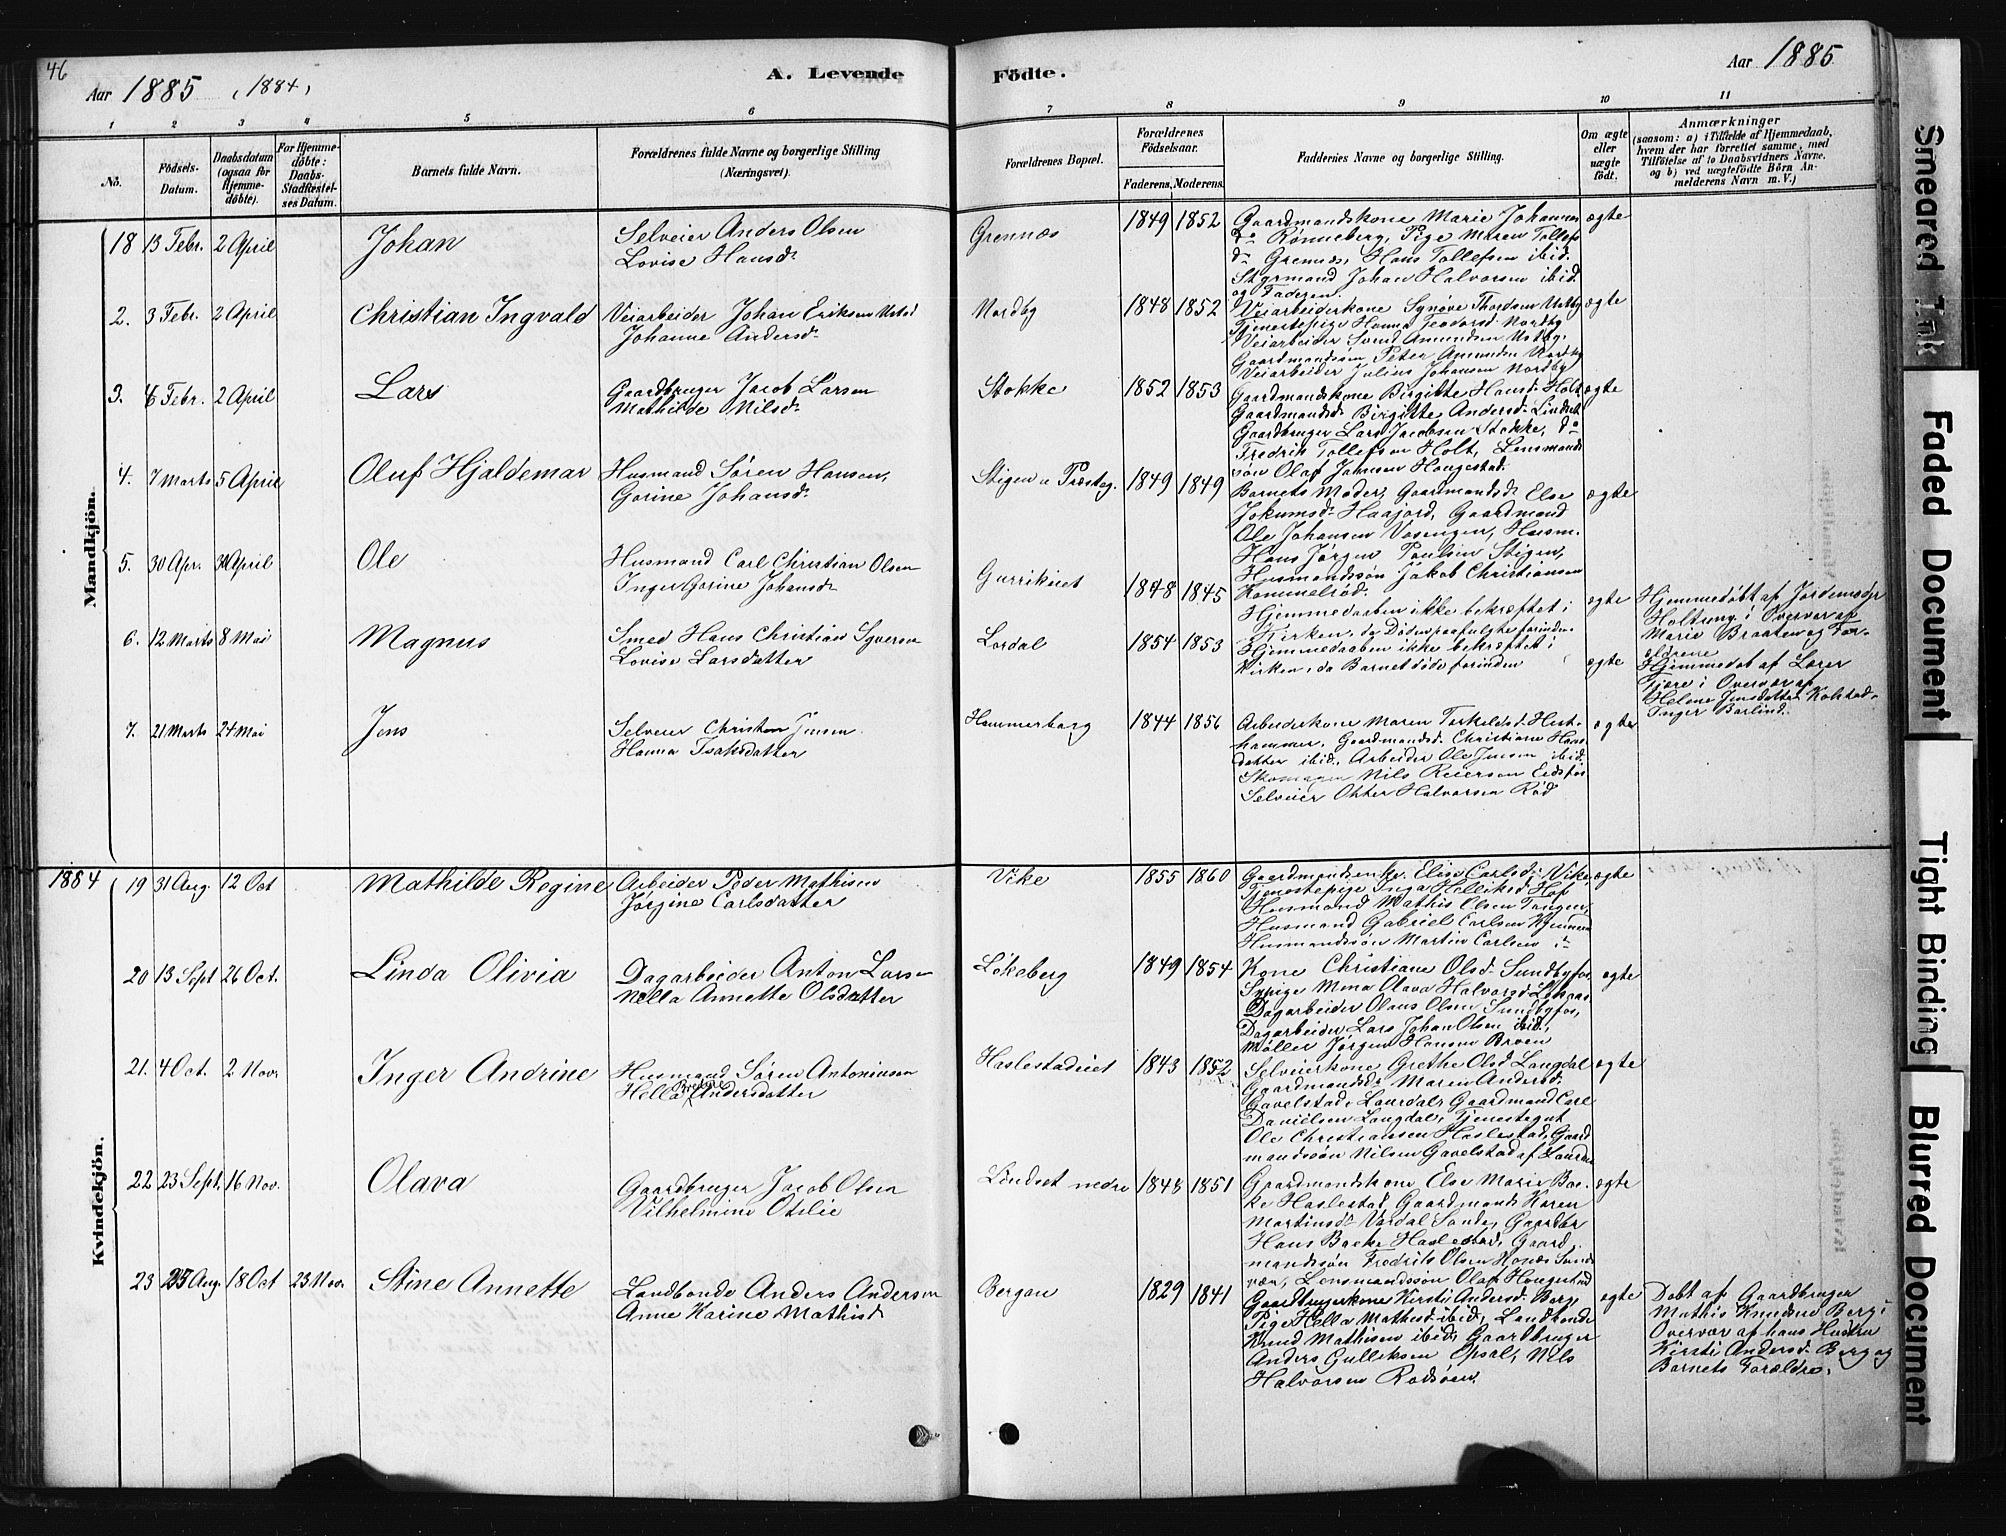 46
Aar 1885 (1884)
A. Levende
Födte.
Aar 1885
1 2 3 4 5 6 7 8 9 10 11
No.
Födsels-Datum.
Daabsdatum (ogsaa for Hjemme-döbte).
For Hjemme-döbte: Daabs-Stadfæstel-ses Datum.
Barnets fulde Navn.
Forældrenes fulde Navne og borgerlige Stilling (Næringsvei).
Forældrenes Bopæl.
Forældrenes Födselsaar.
Faderens. Moderens.
Faddernes Navne og borgerlige Stilling.
Om ægte eller uægte födt.
Anmærkninger
(saasom: a) i Tilfælde af Hjemmedaab, hvem der har forrettet samme, med Tilföielse af to Daabsvidners Navne, og b) ved uægtefödte Börn An-melderens Navn m. V.)
Mandkjön.
18 13 Febr. 2 April Johan
Selveier Anders Olsen
Lovise Hansd.
Grennæs 1849 1852
Gaardmandskone Marie Johannes
d. Rønneberg, Pige Maren Tollefs
d. Grennæs, Hans Tollefsen ibid.
Styrmand Johan Halvorsen ibid.
og Faderen.
ægte
2. 3 Febr. 2 April Christian Ingvald
Veiarbeider Johan Eriksen
Johanne Andersd.
Nordby 1848 1852
Veiarbeiderkone Synøve Thordsen
Tjenestepige Hanna Teodorsd. Nordby
Veiarbeider Svend Amundsen
Gaardmandssøn Peter Amundsen Nordby
Veiarbeider Julius Johansen Nordby
ægte
3. 6 Febr. 2 April Lars
Gaardbruger Jacob Larsen
Mathilde Nilsd.
Stokke 1852 1853
Gaardmandskone Birgitte Hansd. Holt
Gaardmandsd. Birgitte Andersd.
Gaardbruger Lars Jacobsen Stokke, do
Fredrik Tollefsen Holt, Lensmands
søn Olaf Jansen Haugestad.
ægte
4. 7 Marts 5 April Oluf Hjaldemar
Husmand Søren Hansen,
Gorine Johansd.
Stigen u. Præsteg. 1849 1849
Barnets Moder, Gaardmandsd. Else
Jokumsd. Haajord, Gaardmand
Ole Johansen Vasengen, Husm.
Hans Jørgen Paulsen Stigen,
Husmandssøn Jakob Christiansen
ægte
5. 30 Apr. 30 April Ole
Husmand Carl Christian Olsen
Inger Gorine Johansd.
1848 1845
Hjemmedaaben ikke bekræftet i
Kirken, da Døden paafulgte forinden.
ægte
Hjemmedöbt af Jordemoder
Holtung i Overvær af
Marie Braaten og For-
ældrene
6. 12 Marts 8 Mai Magnus
Smed Hans Christian Syversen
Lovise Larsdatter
Lordal 1854 1853
Hjemmedaaben ikke bekræftet i
Kirken, da Barnet døde forinden
ægte
Hjemmedøb af Lærer
i Overvær af
Helene Jensdatter Kolstad
Inger Barlind.
7. 21 Marts 24 Mai Jens
Selveier Christen Jensen
Hanna Isaksdatter
Hammerberg 1844 1856
Arbeiderkone Maren Terkelsd. Hest-
hammer, Gaardmandsd. Christiane Hans
datter ibid., Arbeider Ole Jensen ibid.
Skomager Nils Reiersen Eidsfos
Selveier Okter Halvorsen Rød
ægte
1884
Kvindekjön.
19 31 Aug. 12 Oct Mathilde Regine
Arbeider Peder Mathisen
Jørgine Carlsdatter
Vike 1855 1860
Gaardmandsenke Elise Carlsd. Vike,
Tjenestepige Inga Helliksd. Hof
Husmand Mathis Olsen Tangen,
Husmand Gabriel Carlsen
Husmandssøn Martin Carlsen
ægte
20 13 Sept 26 Oct. Linda Olivia
Dagarbeider Anton Larsen
Nella Annette Olsdatter
Løkeberg 1849 1854
Kone Christiane Olsd. Sundbyfos,
Sypige Mina Olava Halvorsd.
Dagarbeider Olaus Olsen Sundbyfos,
Dagarbeider Lars Johan Olsen ibid.,
Møller Jørgen Hansen Broen
ægte
21. 4 Oct. 2 Nov. Inger Andrine
Husmand Søren Antonisen
Hella Bredine Andersdatter
Haslestadeiet 1843 1852
Selveierkone Grethe Olsd. Langdal
Gaardmandsd. Maren Andersd.
Gavelstad, Laurdal, Gaardmand Carl
Danielsen Langdal, Tjenestegut
Ole Christiansen Haslestad, Gaard
mandssøn Nilsen Gavelstad af
ægte
22 23 Sept. 16 Nov. Olava
Gaardbruger Jacob Olsen
Vilhelmine Otilie
Lindset nedre 1848 1851
Gaardmandskone Else Marie Bac-
ke Haslestad, Gaardmandsd. Karen
Martinsd. Vardal Sande, Gaardbr
Hans Backe Haslestad, Gaard
mandssøn Fredrik Olsen
Lensmandssøn Olaf Haugestad
ægte
23 23 Aug. 18 Oct 23 Nov. Stine Annette
Landbonde Anders Andersen
Anne Karine Mathisd.
Bergan 1829 1841
Gaardbrugerkone Kirsti Andersd. Berg,
Pige Hella Mathisd. ibid., Landbonde
Knud Mathisen ibid., Gaardbruger
Anders Gulliksen Opsal, Nils
Halvorsen Rødsøen.
ægte
Døbt af Gaardbruger
Mathis Knudsen Berg i
Overvær af hans Hustru
Kirsti Andersd. Berg og
Barnets Forældre.
Smeared Ink
Faded Document
Tight Binding
Blurred Document